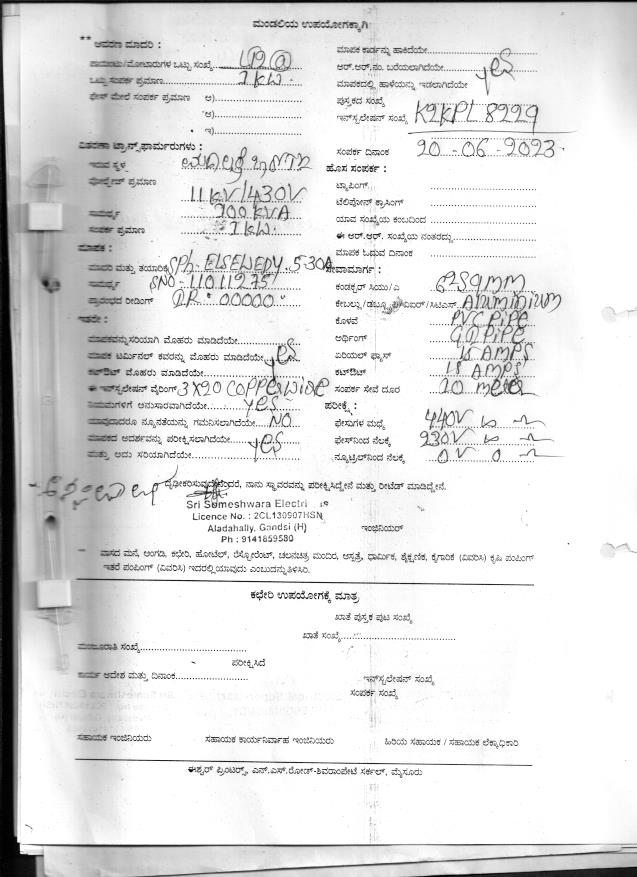 ಮಂಡಲಿಯ ಉಪಯೋಗಕ್ಕಾಗಿ
** ಆವರಣ ಮಾದರಿ :
ಪಾಯಿಂಟು/ಮೋಟಾರುಗಳ ಒಟ್ಟು ಸಂಖ್ಯೆ
ಒಟ್ಟು ಸಂಪರ್ಕ ಪ್ರಮಾಣ 1 KW
ಫೇಸ್ ಮೇಲೆ ಸಂಪರ್ಕ ಪ್ರಮಾಣ ಅ)
ಆ)
ಇ)
ವಿತರಣಾ ಟ್ರಾನ್ಸ್‌ಫಾರ್ಮರುಗಳು :
ಇರುವ ಸ್ಥಳ
ವೋಲ್ಟೇಜ್ ಪ್ರಮಾಣ
11 KV/430V
ಸಾಮರ್ಥ್ಯ 200 KVA
ಸಂಪರ್ಕ ಪ್ರಮಾಣ 1 KW
ಮಾಪಕ :
ಮಾದರಿ ಮತ್ತು ತಯಾರಿಕೆ SPh. ELSEWEDY. 5-30A
ಸಾಮರ್ಥ್ಯ SNO - 11011275
ಪ್ರಾರಂಭದ ರೀಡಿಂಗ್ IR - 00000
ಇತರೇ :
ಮಾಪಕವನ್ನು ಸರಿಯಾಗಿ ಮೊಹರು ಮಾಡಿದೆಯೇ
ಮಾಪಕ ಟರ್ಮಿನಲ್ ಕವರನ್ನು ಮೊಹರು ಮಾಡಿದೆಯೇ yes
ಕಟ್‌ಔಟ್ ಮೊಹರು ಮಾಡಿದೆಯೇ
ಈ ಇನ್‌ಸ್ಟಲೇಷನ್ ವೈರಿಂಗ್ 3X20 COPPER WIRE
ನಿಯಮಗಳಿಗೆ ಅನುಸಾರವಾಗಿದೆಯೇ yes
ಯಾವುದಾದರೂ ನ್ಯೂನತೆಯನ್ನು ಗಮನಿಸಲಾಗಿದೆಯೇ NO
ಮಾಪಕದ ಆದರ್ಶವನ್ನು ಪರೀಕ್ಷಿಸಲಾಗಿದೆಯೇ yes
ಮತ್ತು ಅದು ಸರಿಯಾಗಿದೆಯೇ
ಮಾಪಕ ಕಾರ್ಡನ್ನು ಹಾಕಿದೆಯೇ
ಆರ್.ಆರ್.ನಂ. ಬರೆಯಲಾಗಿದೆಯೇ yes
ಮಾಪಕದಲ್ಲಿ ಹಾಳೆಯನ್ನು ಇಡಲಾಗಿದೆಯೇ
ಪುಸ್ತಕದ ಸಂಖ್ಯೆ
ಇನ್‌ಸ್ಟಲೇಷನ್ ಸಂಖ್ಯೆ K2KPL8229
ಸಂಪರ್ಕ ದಿನಾಂಕ 20-06-2023
ಹೊಸ ಸಂಪರ್ಕ :
ಟ್ಯಾಪಿಂಗ್
ಟೆಲಿಫೋನ್ ಕ್ರಾಸಿಂಗ್
ಯಾವ ಸಂಖ್ಯೆಯ ಕಂಬದಿಂದ
ಈ ಆರ್.ಆರ್. ಸಂಖ್ಯೆಯ ನಂತರದ್ದು
ಮಾಪಕ ಓದುವ ದಿನಾಂಕ
ಸೇವಾಮಾರ್ಗ :
ಕಂಡಕ್ಟರ್ ಸಿಯು/ಎ
ಕೇಬಲ್ಲು Aluminium
ಕೊಳವೆ PVC PIPE
ಅರ್ಥಿಂಗ್ GI PIPE
ಏರಿಯಲ್ ಫ್ಯೂಸ್ 15 AMPS
ಕಟ್‌ಔಟ್ 15 AMPS
ಸಂಪರ್ಕ ಸೇವೆ ದೂರ 20 meter
ಪರೀಕ್ಷೆ :
ಫೇಸುಗಳ ಮಧ್ಯೆ 440V
ಫೇಸ್‌ನಿಂದ ನೆಲಕ್ಕೆ 230V
ನ್ಯೂಟ್ರಲ್‌ನಿಂದ ನೆಲಕ್ಕೆ 0V 0
ದೃಢೀಕರಿಸುವುದೇನೆಂದರೆ, ನಾನು ಸ್ಥಾವರವನ್ನು ಪರೀಕ್ಷಿಸಿದ್ದೇನೆ ಮತ್ತು ರೀಟೆಡ್ ಮಾಡಿದ್ದೇನೆ.
Sri Someshwara Electri
Licence No. : 2CL130907HSN
Aladahally, Gandsi (H)
Ph : 9141859580
ಇಂಜಿನಿಯರ್
– ವಾಸದ ಮನೆ, ಅಂಗಡಿ, ಕಛೇರಿ, ಹೋಟೆಲ್, ರೆಸ್ಟೋರೆಂಟ್, ಚಲನಚಿತ್ರ ಮಂದಿರ, ಆಸ್ಪತ್ರೆ, ಧಾರ್ಮಿಕ, ಶೈಕ್ಷಣಿಕ, ಕೈಗಾರಿಕೆ (ವಿವರಿಸಿ) ಕೃಷಿ ಪಂಪಿಂಗ್
ಇತರೆ ಪಂಪಿಂಗ್ (ವಿವರಿಸಿ) ಇದರಲ್ಲಿ ಯಾವುದು ಎಂಬುದನ್ನು ತಿಳಿಸಿರಿ.
ಕಛೇರಿ ಉಪಯೋಗಕ್ಕೆ ಮಾತ್ರ
ಖಾತೆ ಪುಸ್ತಕ ಪುಟ ಸಂಖ್ಯೆ
ಖಾತೆ ಸಂಖ್ಯೆ
ಮಂಜೂರಾತಿ ಸಂಖ್ಯೆ
ಪರೀಕ್ಷಿಸಿದೆ
ಕಾರ್ಯ ಆದೇಶ ಮತ್ತು ದಿನಾಂಕ
ಇನ್‌ಸ್ಟಲೇಷನ್ ಸಂಖ್ಯೆ
ಸಂಪರ್ಕ ಸಂಖ್ಯೆ
ಸಹಾಯಕ ಇಂಜಿನಿಯರು
ಸಹಾಯಕ ಕಾರ್ಯನಿರ್ವಾಹ ಇಂಜಿನಿಯರು
ಹಿರಿಯ ಸಹಾಯಕ / ಸಹಾಯಕ ಲೆಕ್ಕಾಧಿಕಾರಿ
ಈಶ್ವರ್ ಪ್ರಿಂಟರ್ಸ್, ಎನ್.ಎಸ್.ರೋಡ್-ಶಿವರಾಂಪೇಟೆ ಸರ್ಕಲ್, ಮೈಸೂರು